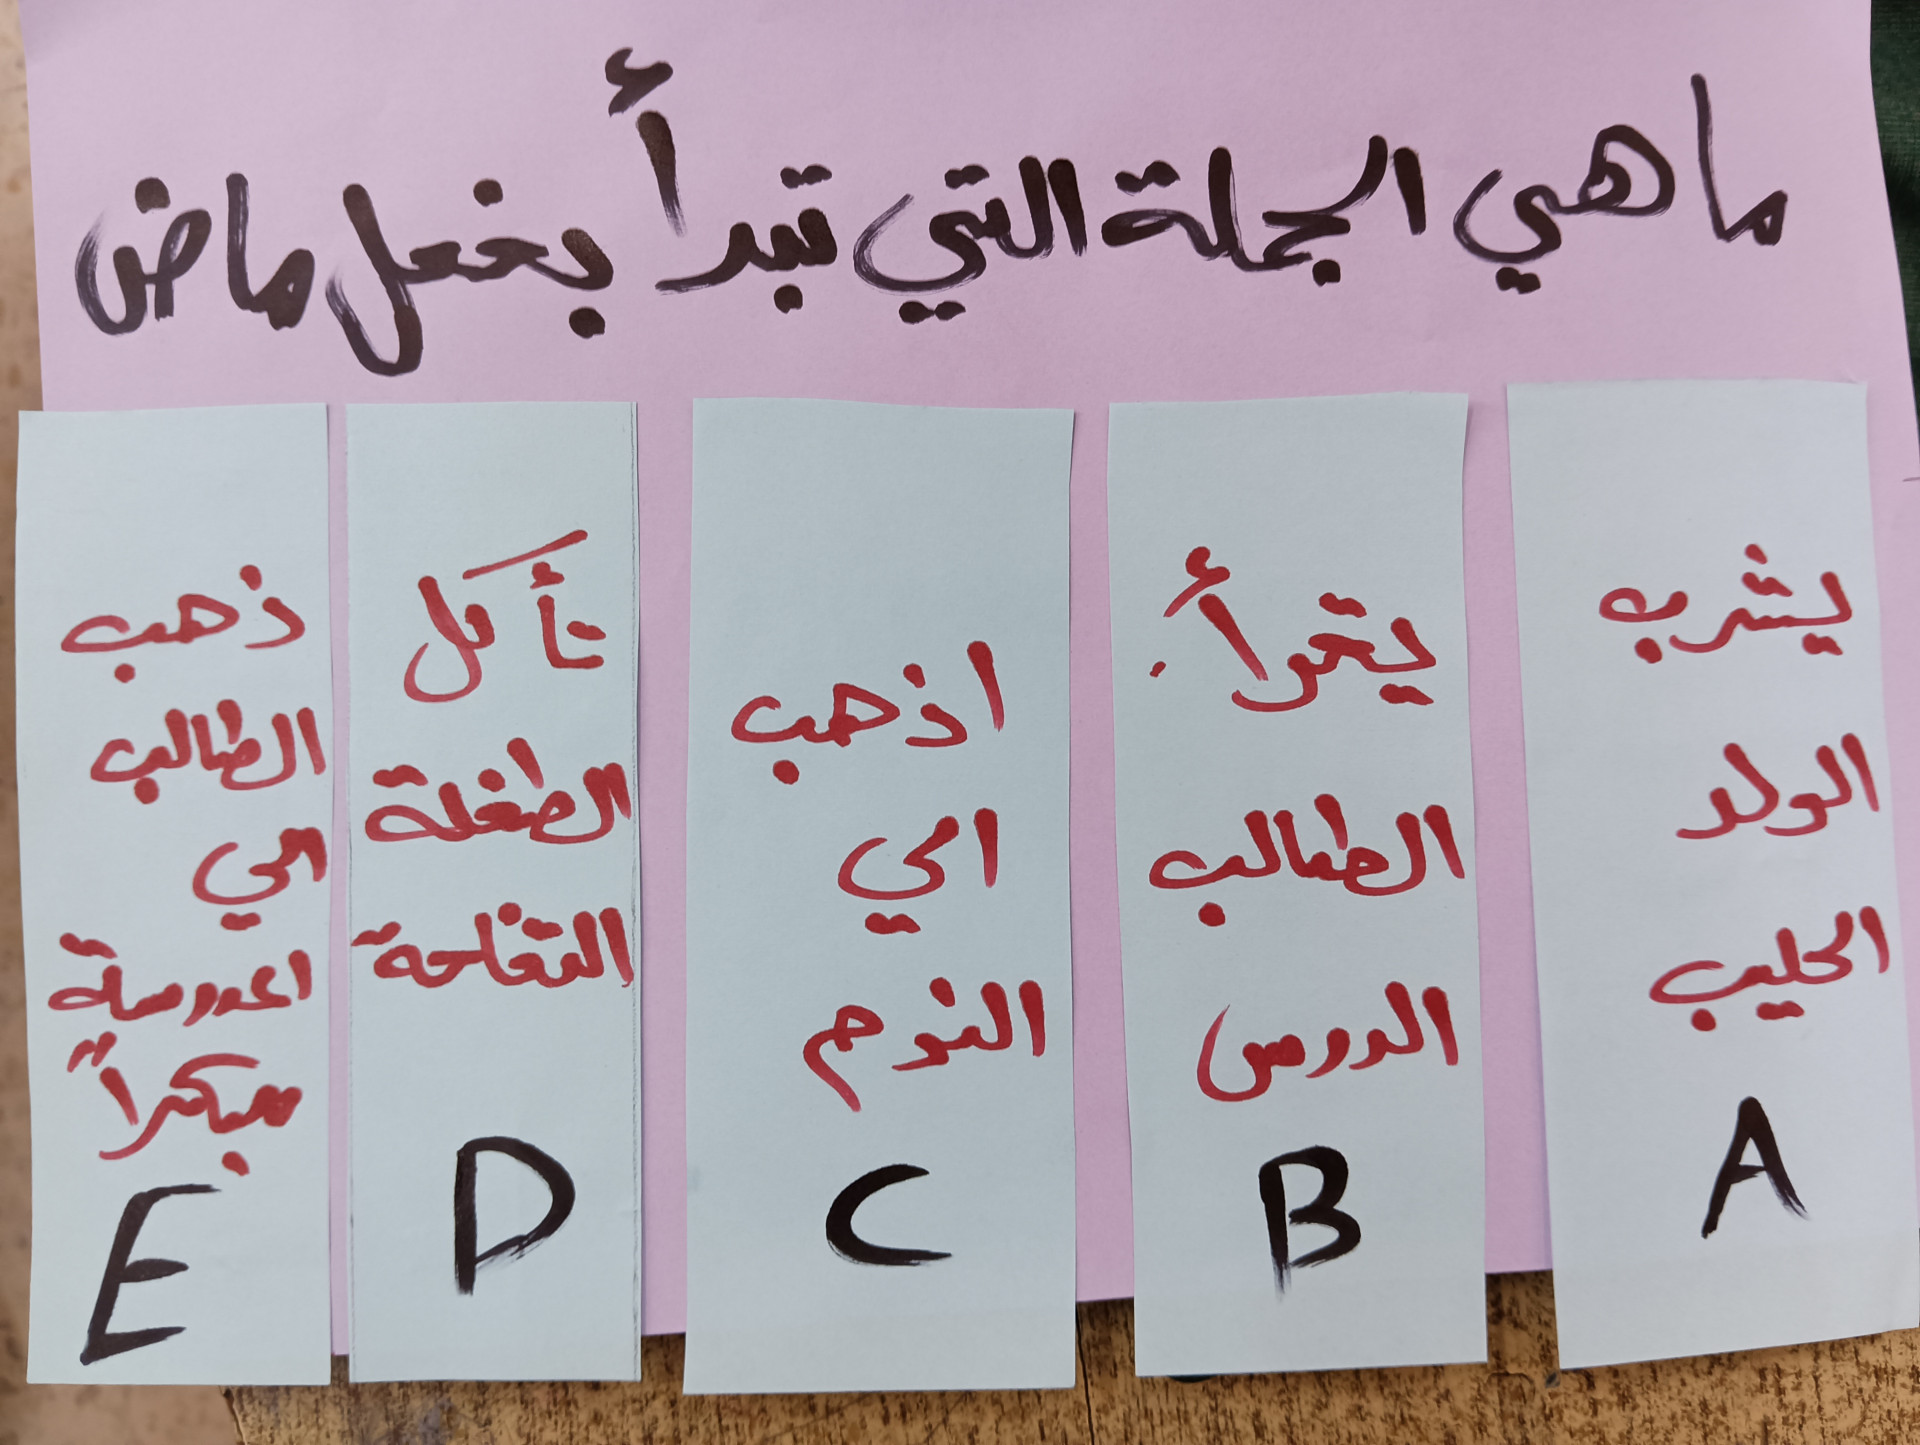 ما هي الجملة التي تبدأ بفعل ماض
يشرب
الولد
الحليب
A
يقرأ.
الطالب
الدرس
B
اذهب
الي
النوم
C
تأكل
الطفلة
التفاحة
D
ذهب
الطالب
الي
المدرسة
مبكراً
E